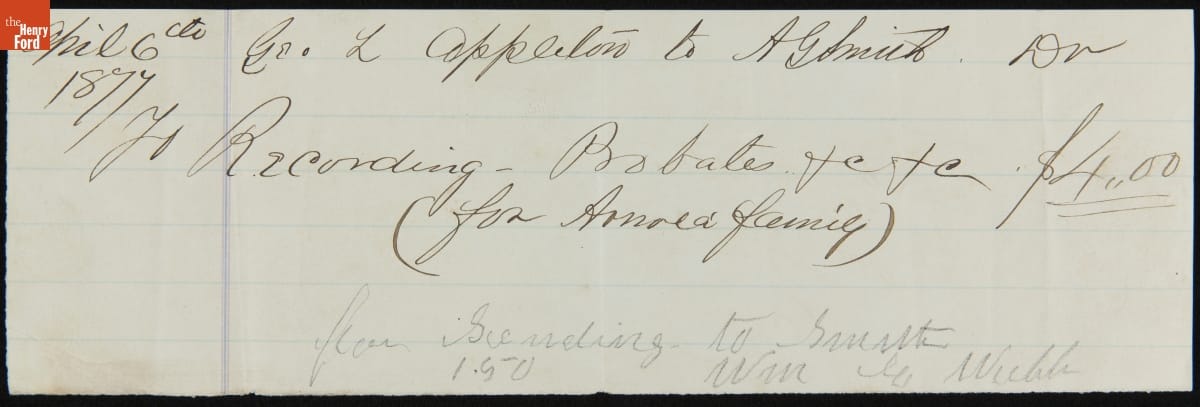 the Henry Ford
April 6th Geo. L Appleton to A G Smith. Dr
1877
To Recording - Probates &c &c. $4,,00
(for Arnold family)
for Sending to Smith
1.50 Wm Webb